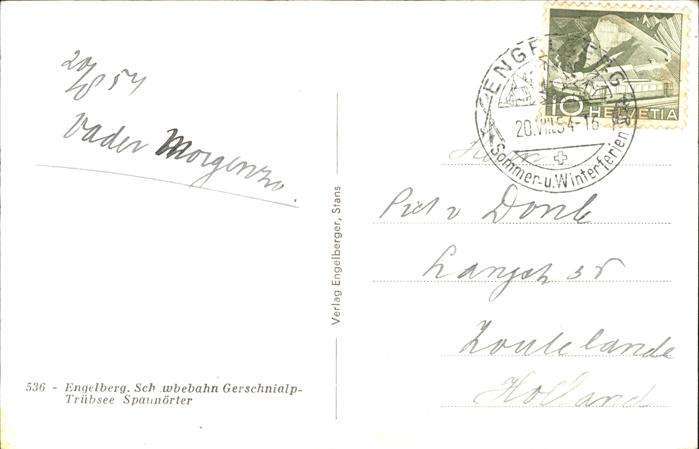 20/8 54
Vader Morgenzo.
536 - Engelberg. Schwbebahn Gerschnialp-
Trübsee Spannörter
Verlag Engelberger, Stans
ENGELBERG
20.VIII.54-16
Sommer-u.Winterferien
10 HELVETIA
Piet v Donk
Langst 35
Zoutelande
Holland